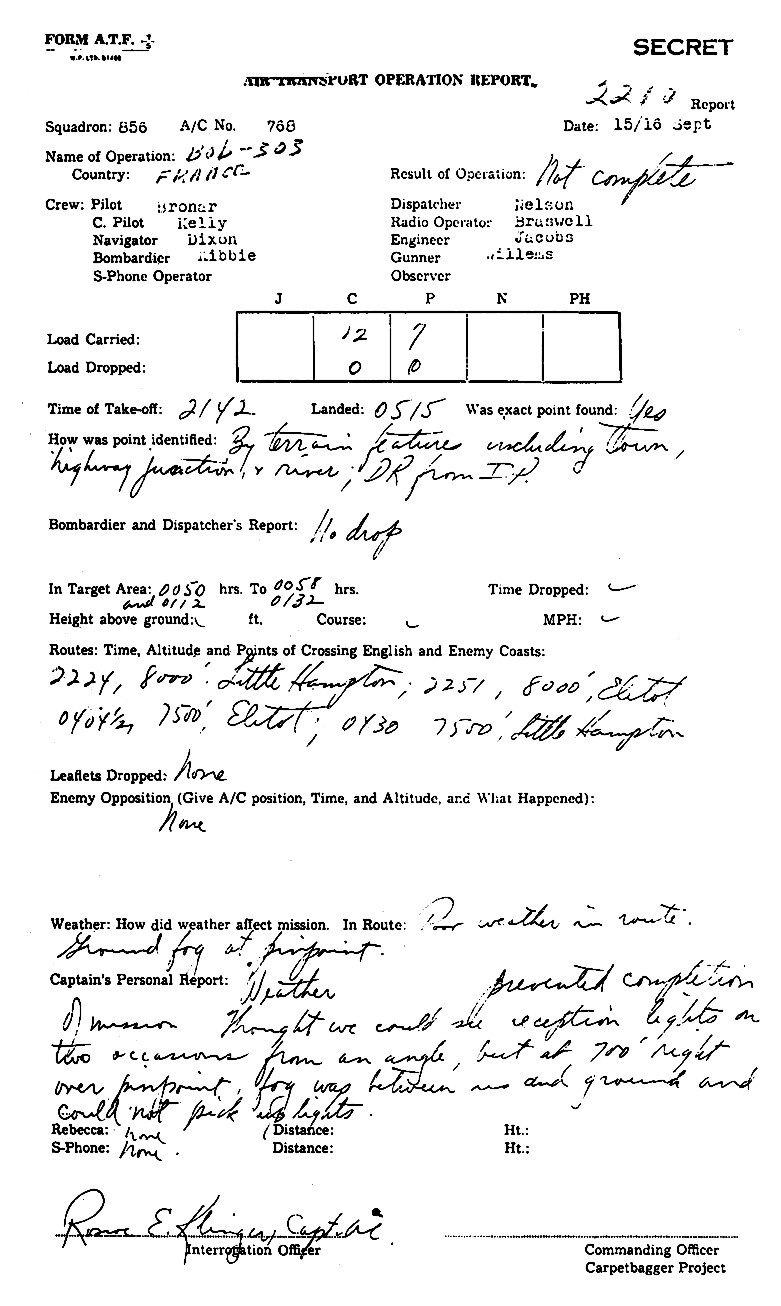 FORM A.T.F.
SECRET
AIR TRANSPORT OPERATION REPORT.
Report
Squadron: 856 A/C No. 768 Date: 15/16 Sept
Name of Operation: BOB-303
Country: FRANCE Result of Operation: Not complete
Crew: Pilot Bronar Dispatcher Nelson
C. Pilot Kelly Radio Operator Braswell
Navigator Dixon Engineer Jacobs
Bombardier Kibbie Gunner Willems
S-Phone Operator Observer
J C P N PH
Load Carried: 12 7
Load Dropped: 0 0
Time of Take-off: 2142 Landed: 0515 Was exact point found: Yes
How was point identified: By terrain features including town,
highway junction, & river; DR from I.P.
Bombardier and Dispatcher's Report: No drop
In Target Area: 0050 hrs. To 0058 hrs. Time Dropped: ✓
and 0112 0132
Height above ground: ft. Course: MPH:
Routes: Time, Altitude and Points of Crossing English and Enemy Coasts:
2224, 8000' Little Hampton; 2251, 8000', Eletot
0404½, 7500', Eletot; 0430 7500', Little Hampton
Leaflets Dropped: None
Enemy Opposition (Give A/C position, Time, and Altitude, and What Happened):
None
Weather: How did weather affect mission. In Route: Poor weather in route.
Ground fog at pinpoint.
Captain's Personal Report: Weather prevented completion
of mission Thought we could see reception lights on
two occasions from an angle, but at 700' right
over pinpoint, fog was between us and ground and
could not pick up lights.
Rebecca: None Distance: Ht.:
S-Phone: None. Distance: Ht.:
E. Klinger, Capt. AC
Interrogation Officer Commanding Officer
Carpetbagger Project